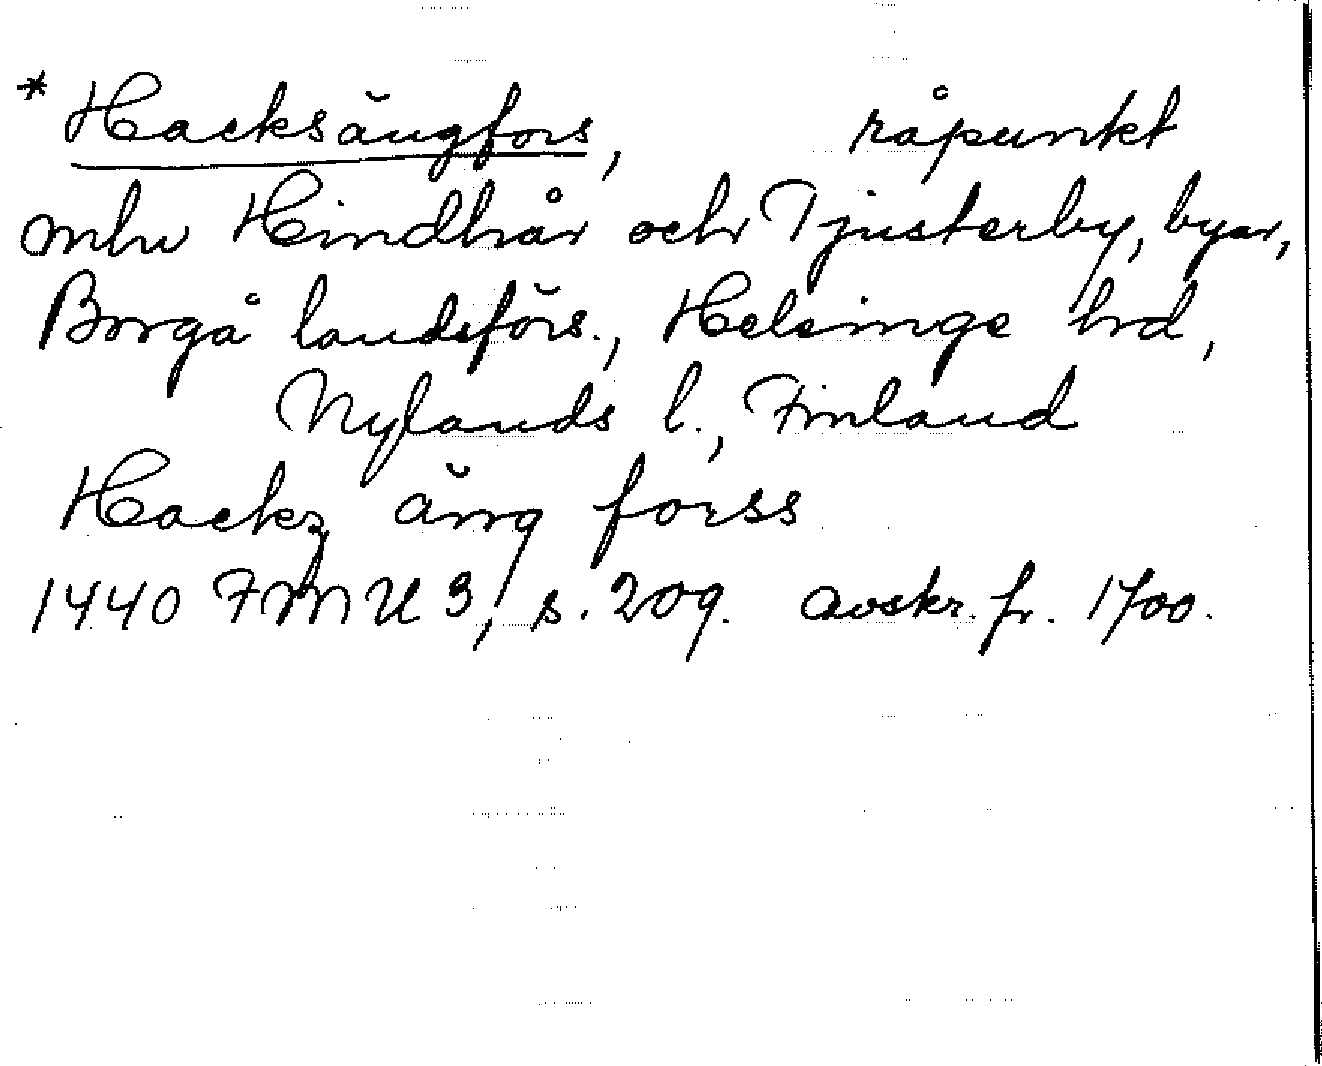 * Hacksängfors, råpunkt
mlw Hindhår och Tjusterby, byar,
Borgå landsförs., Helsinge hd,
Nylands l., Finland
Hackz äng forss
1440 FMU 3, s. 209. avskr. fr. 1700.